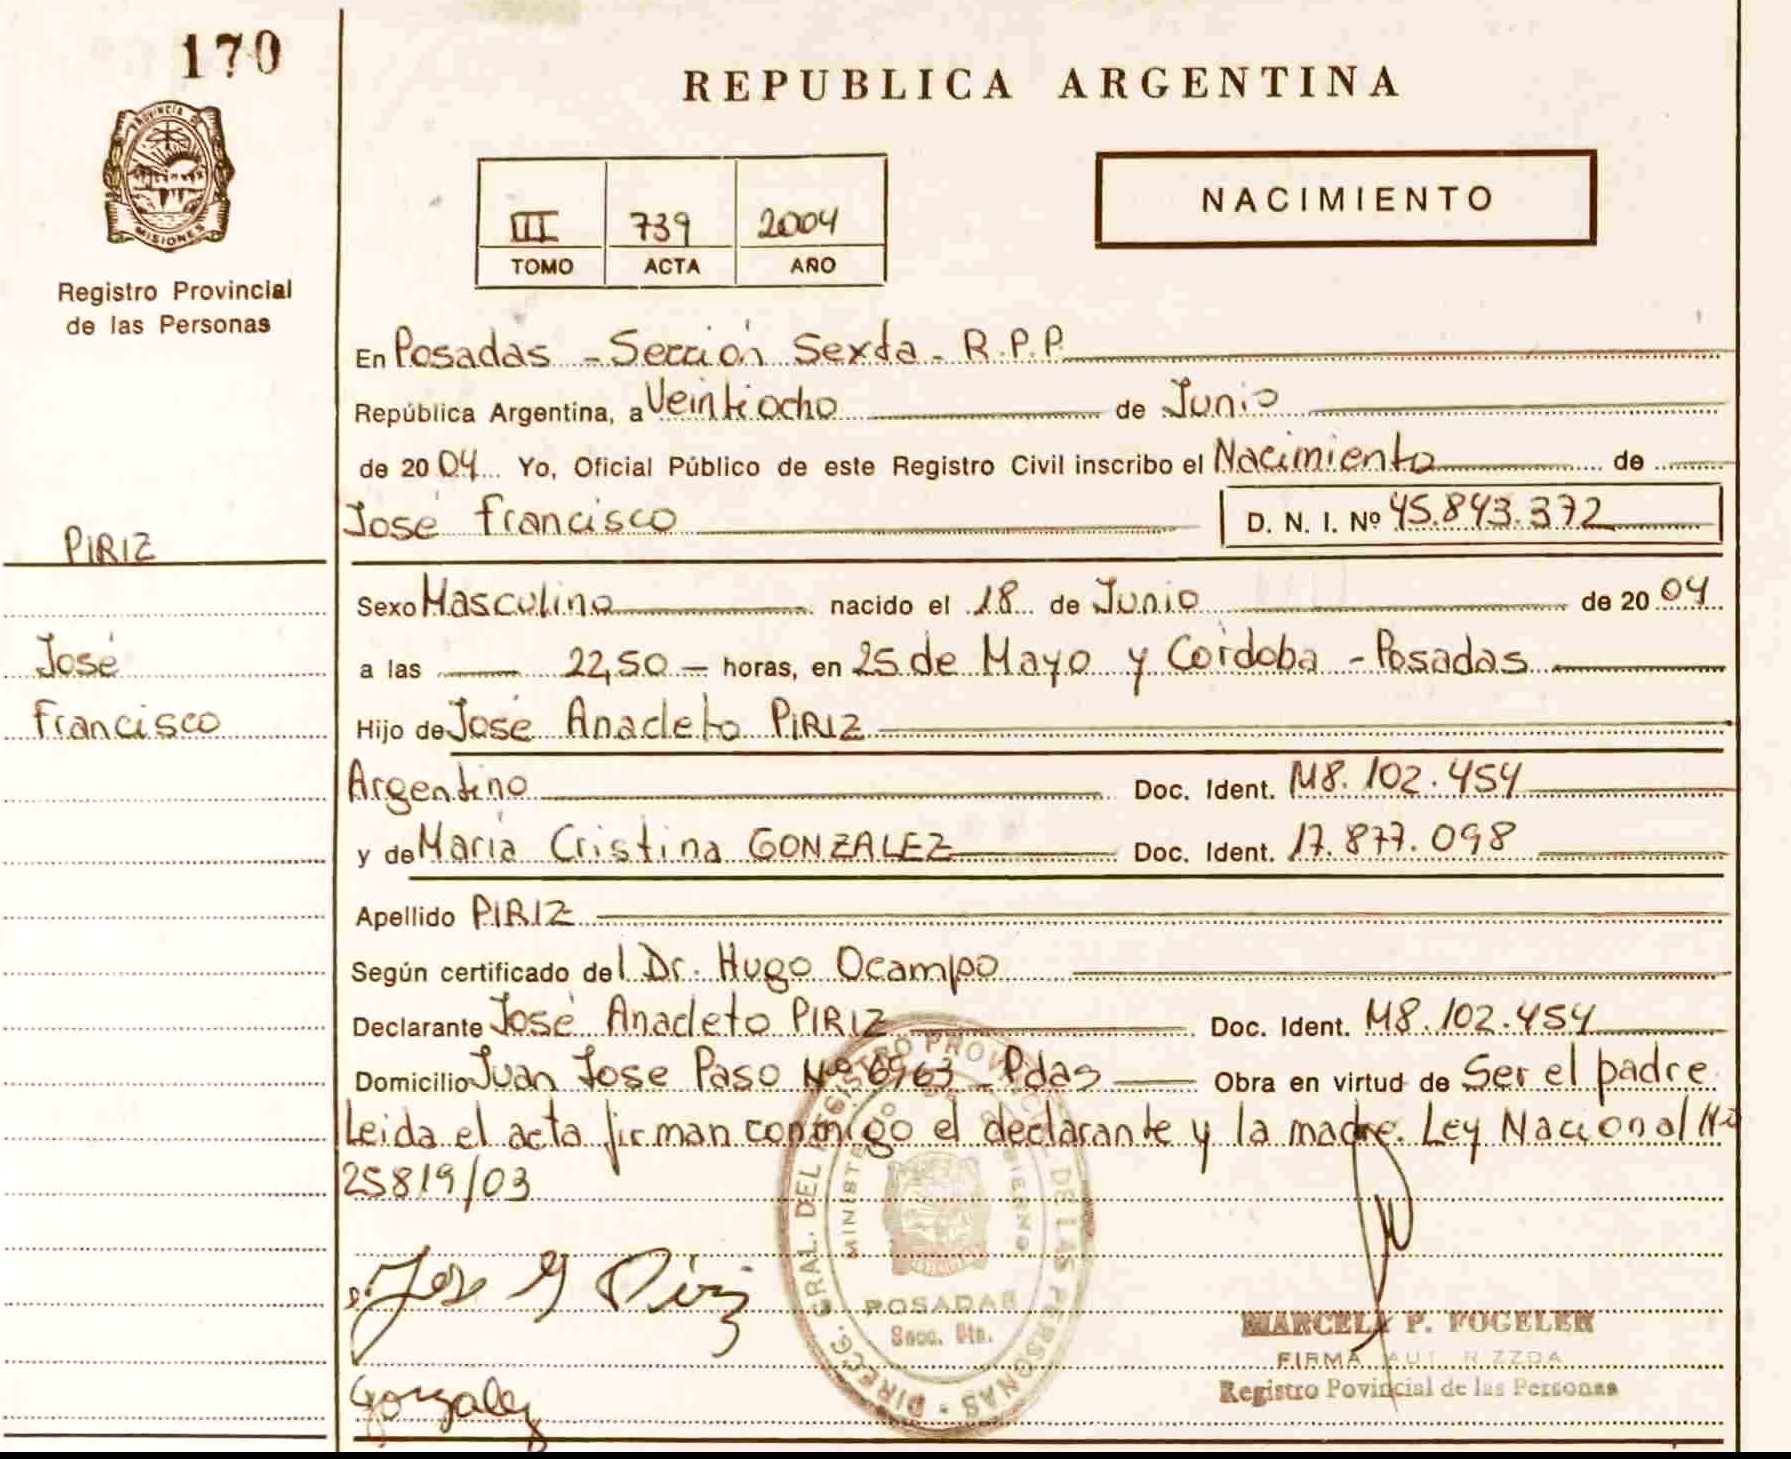 170
PROVINCIA DE
MISIONES
Registro Provincial
de las Personas
REPUBLICA ARGENTINA
III 739 2004
TOMO ACTA AÑO
NACIMIENTO
En Posadas - Sección Sexta - R.P.P.
República Argentina, a Veintiocho de Junio
de 2004 Yo, Oficial Público de este Registro Civil inscribo el Nacimiento de
José Francisco D. N. I. Nº 45.843.372
PIRIZ
José
Francisco
Sexo Masculino nacido el 18 de Junio de 2004
a las 22,50 horas, en 25 de Mayo y Córdoba - Posadas
Hijo de José Anacleto PIRIZ
Argentino Doc. Ident. M8.102.454
y de María Cristina GONZALEZ Doc. Ident. 17.877.098
Apellido PIRIZ
Según certificado del Dr. Hugo Ocampo
Declarante José Anacleto PIRIZ Doc. Ident. M8.102.454
Domicilio Juan Jose Paso Nº 6963 - Pdas Obra en virtud de Ser el padre
Leida el acta firman conmigo el declarante y la madre. Ley Nacional Nº
25819/03
Jose Piriz
Gonzalez
DIRECC. GRAL. DEL REGISTRO PROVINCIAL DE LAS PERSONAS
MINISTERIO DE GOBIERNO
POSADAS
Secc. 6ta.
MARCELA P. FOGELER
FIRMA AUT RIZZDA
Registro Povincial de las Personas